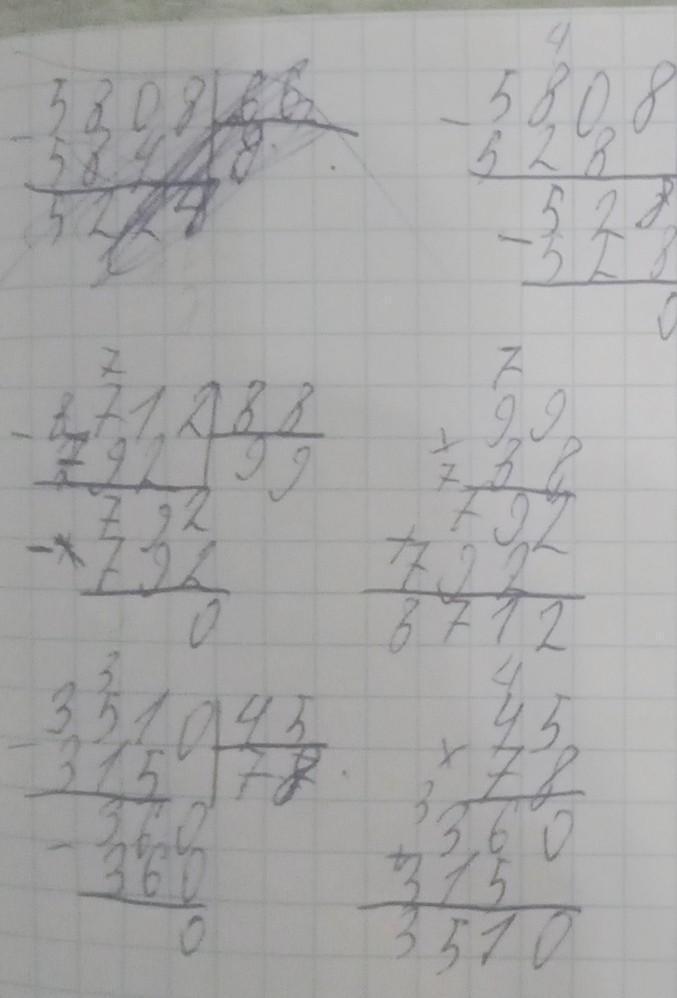 4
- 5808 | 66 - 5808
584 | 8 528
5224 528
- 528
0
7 7
- 8712 | 88 99
792 | 99 × 88
7
792 792
- 792 + 792
0 8712
3 4
- 3510 | 45 45
315 | 78 × 78
3
- 360 360
360 + 315
0 3510